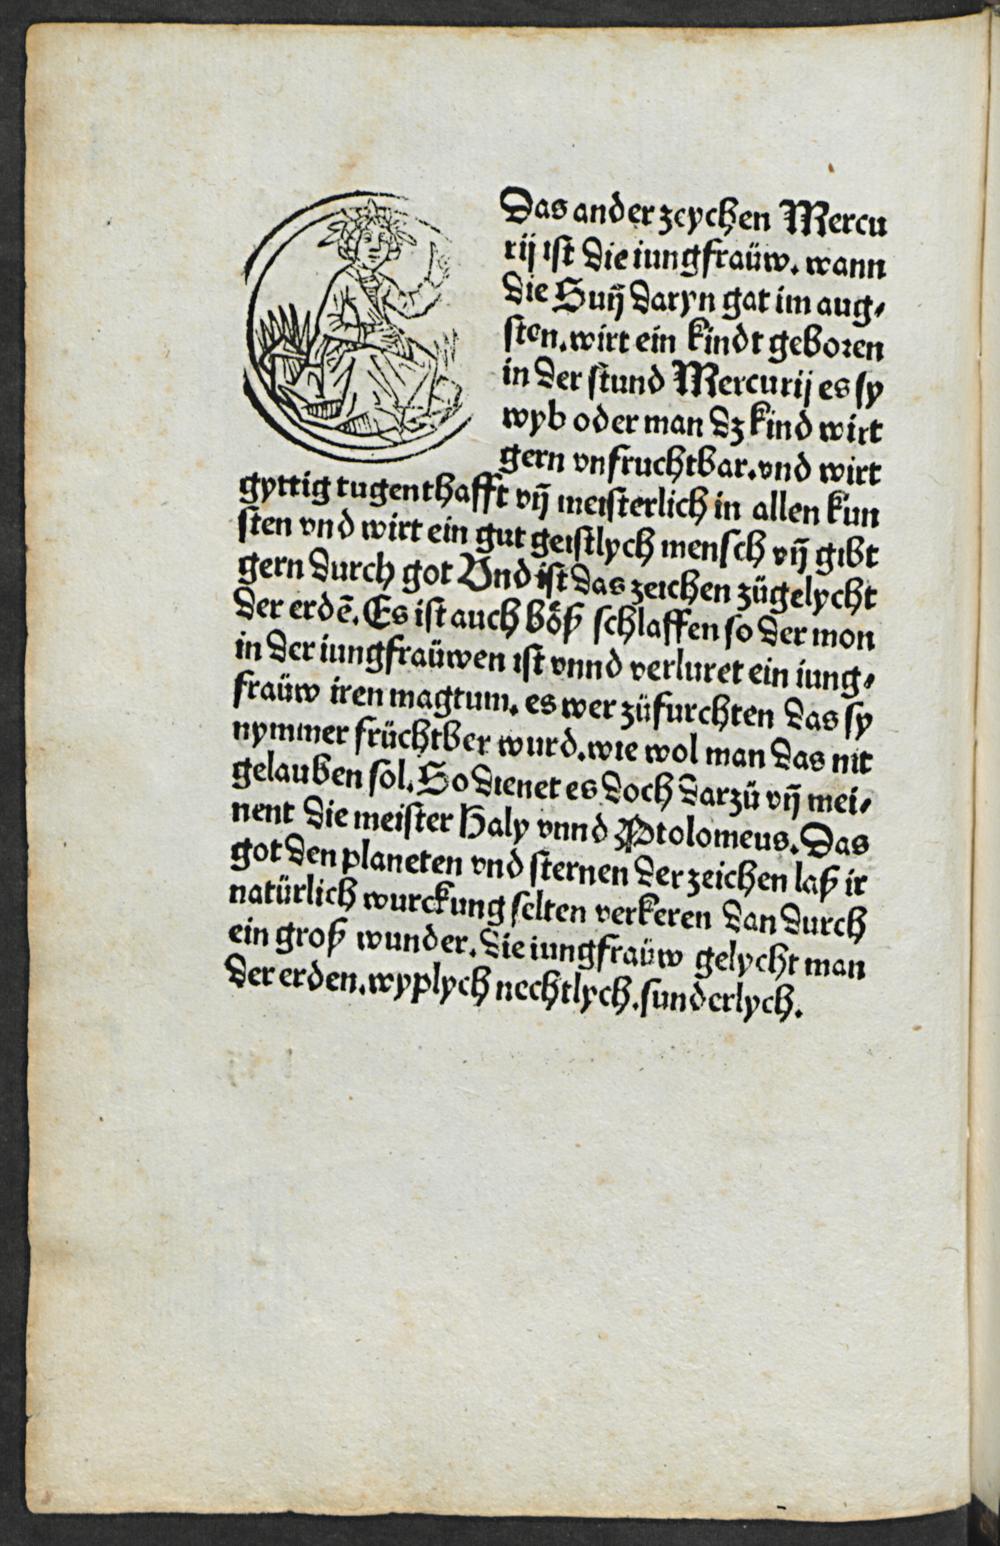 Das ander zeychen Mercu
rij ist die iungfraüw. wann
die Suñ daryn gat im aug⸗
sten. wirt ein kindt geboren
in der stund Mercurij es sy
wyb oder man dz kind wirt
gern vnfruchtbar. vnd wirt
gyttig tugenthafft vñ meisterlich in allen kun
sten vnd wirt ein gut geistlych mensch vñ gibt
gern durch got Vnd ist das zeichen zügelycht
der erdē. Es ist auch böß schlaffen so der mon
in der iungfraüwen ist vnnd verluret ein iung⸗
fraüw iren magtum. es wer züfurchten das sy
nymmer früchtber wurd. wie wol man das nit
gelauben sol. So dienet es doch darzü vñ mei⸗
nent die meister Haly vnnd Ptolomeus. Das
got den planeten vnd sternen der zeichen laß ir
natürlich wurckung selten verkeren dan durch
ein groß wunder. die iungfraüw gelycht man
der erden. wyplych nechtlych. sunderlych.